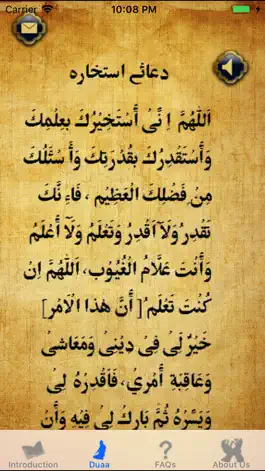 Carrier 10:08 PM
دعائے استخارہ
اَللّٰهُمَّ اِنِّىْ أَسْتَخِيْرُكَ بِعِلْمِكَ
وَأَسْتَقْدِرُكَ بِقُدْرَتِكَ وَأَسْئَلُكَ
مِنْ فَضْلِكَ الْعَظِيْمِ ، فَاءِنَّكَ
تَقْدِرُ وَلَآ أَقْدِرُ وَتَعْلَمُ وَلَآ أَعْلَمُ
وَأَنْتَ عَلَّامُ الْغُيُوْبِ، اَللّٰهُمَّ اِنْ
كُنْتَ تَعْلَمُ [ أَنَّ هٰذَا الْاَمْرَ]
خَيْرٌ لِّى فِىْ دِيْنِىْ وَمَعَاشِىْ
وَعَاقِبَةِ أَمْرِيْ، فَاقْدُرْهُ لِىْ
وَيَسِّرْهُ ثُمَّ بَارِكْ لِىْ فِيْهِ وَأَنْ
Introduction Duaa FAQs About Us